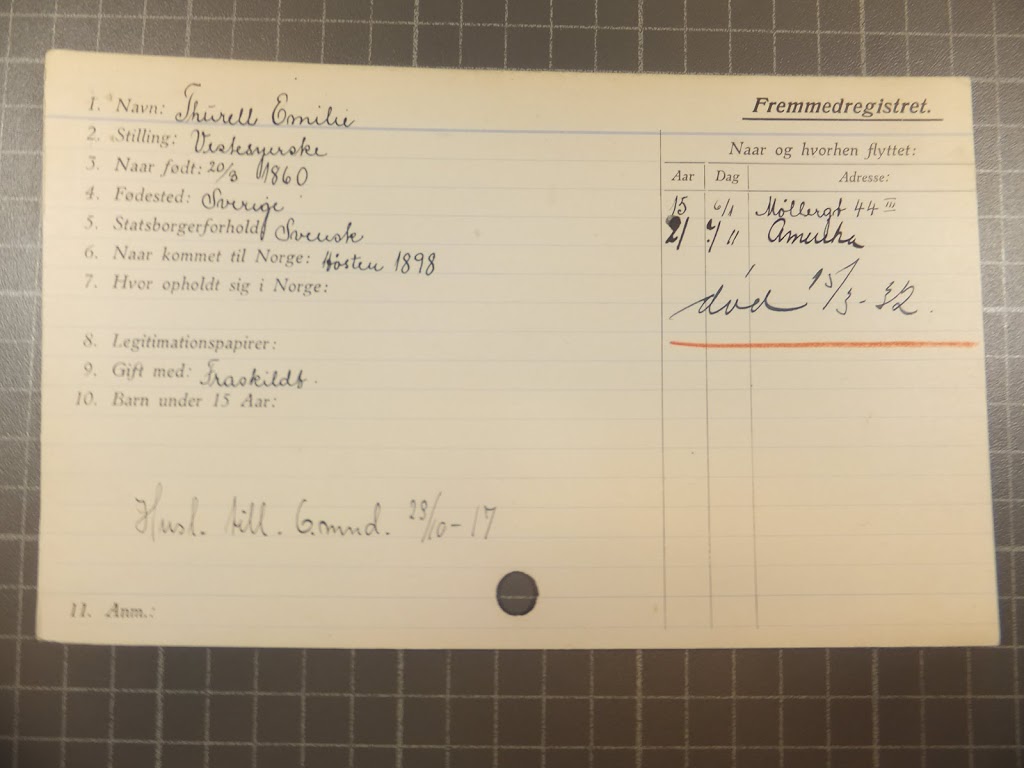 Fremmedregistret.
1. Navn: Thurell Emilie
2. Stilling: Vestesyerske
3. Naar født: 20/3 1860
4. Fødested: Sverige
5. Statsborgerforhold: Svensk
6. Naar kommet til Norge: Høsten 1898
7. Hvor opholdt sig i Norge:
8. Legitimationspapirer:
9. Gift med: Fraskildt.
10. Barn under 15 Aar:
Husl. till. 6 mnd. 23/10-17
11. Anm.:
Naar og hvorhen flyttet:
Aar Dag Adresse:
15 6/1 Møllergt 44 III
21 7/11 Amerika
død 15/3-32.